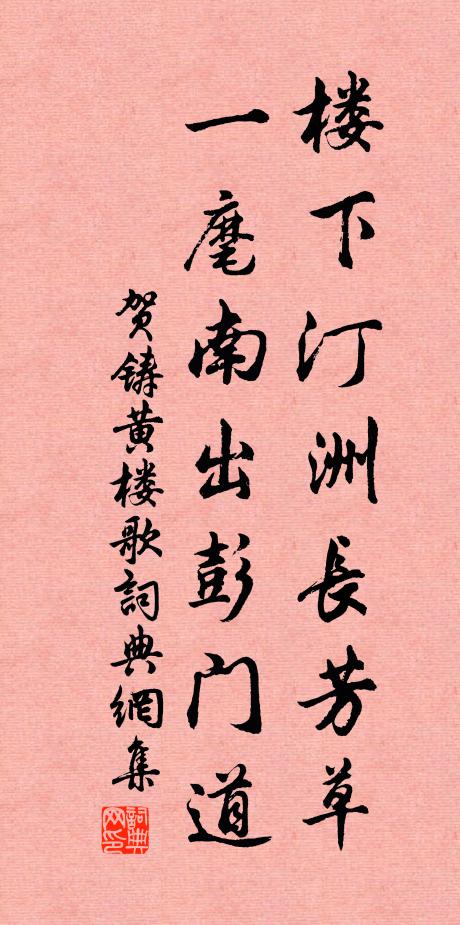 楼下汀洲長芳草
一麾南出彭门道
贺铸黄楼歌詞典網集
詞典网印